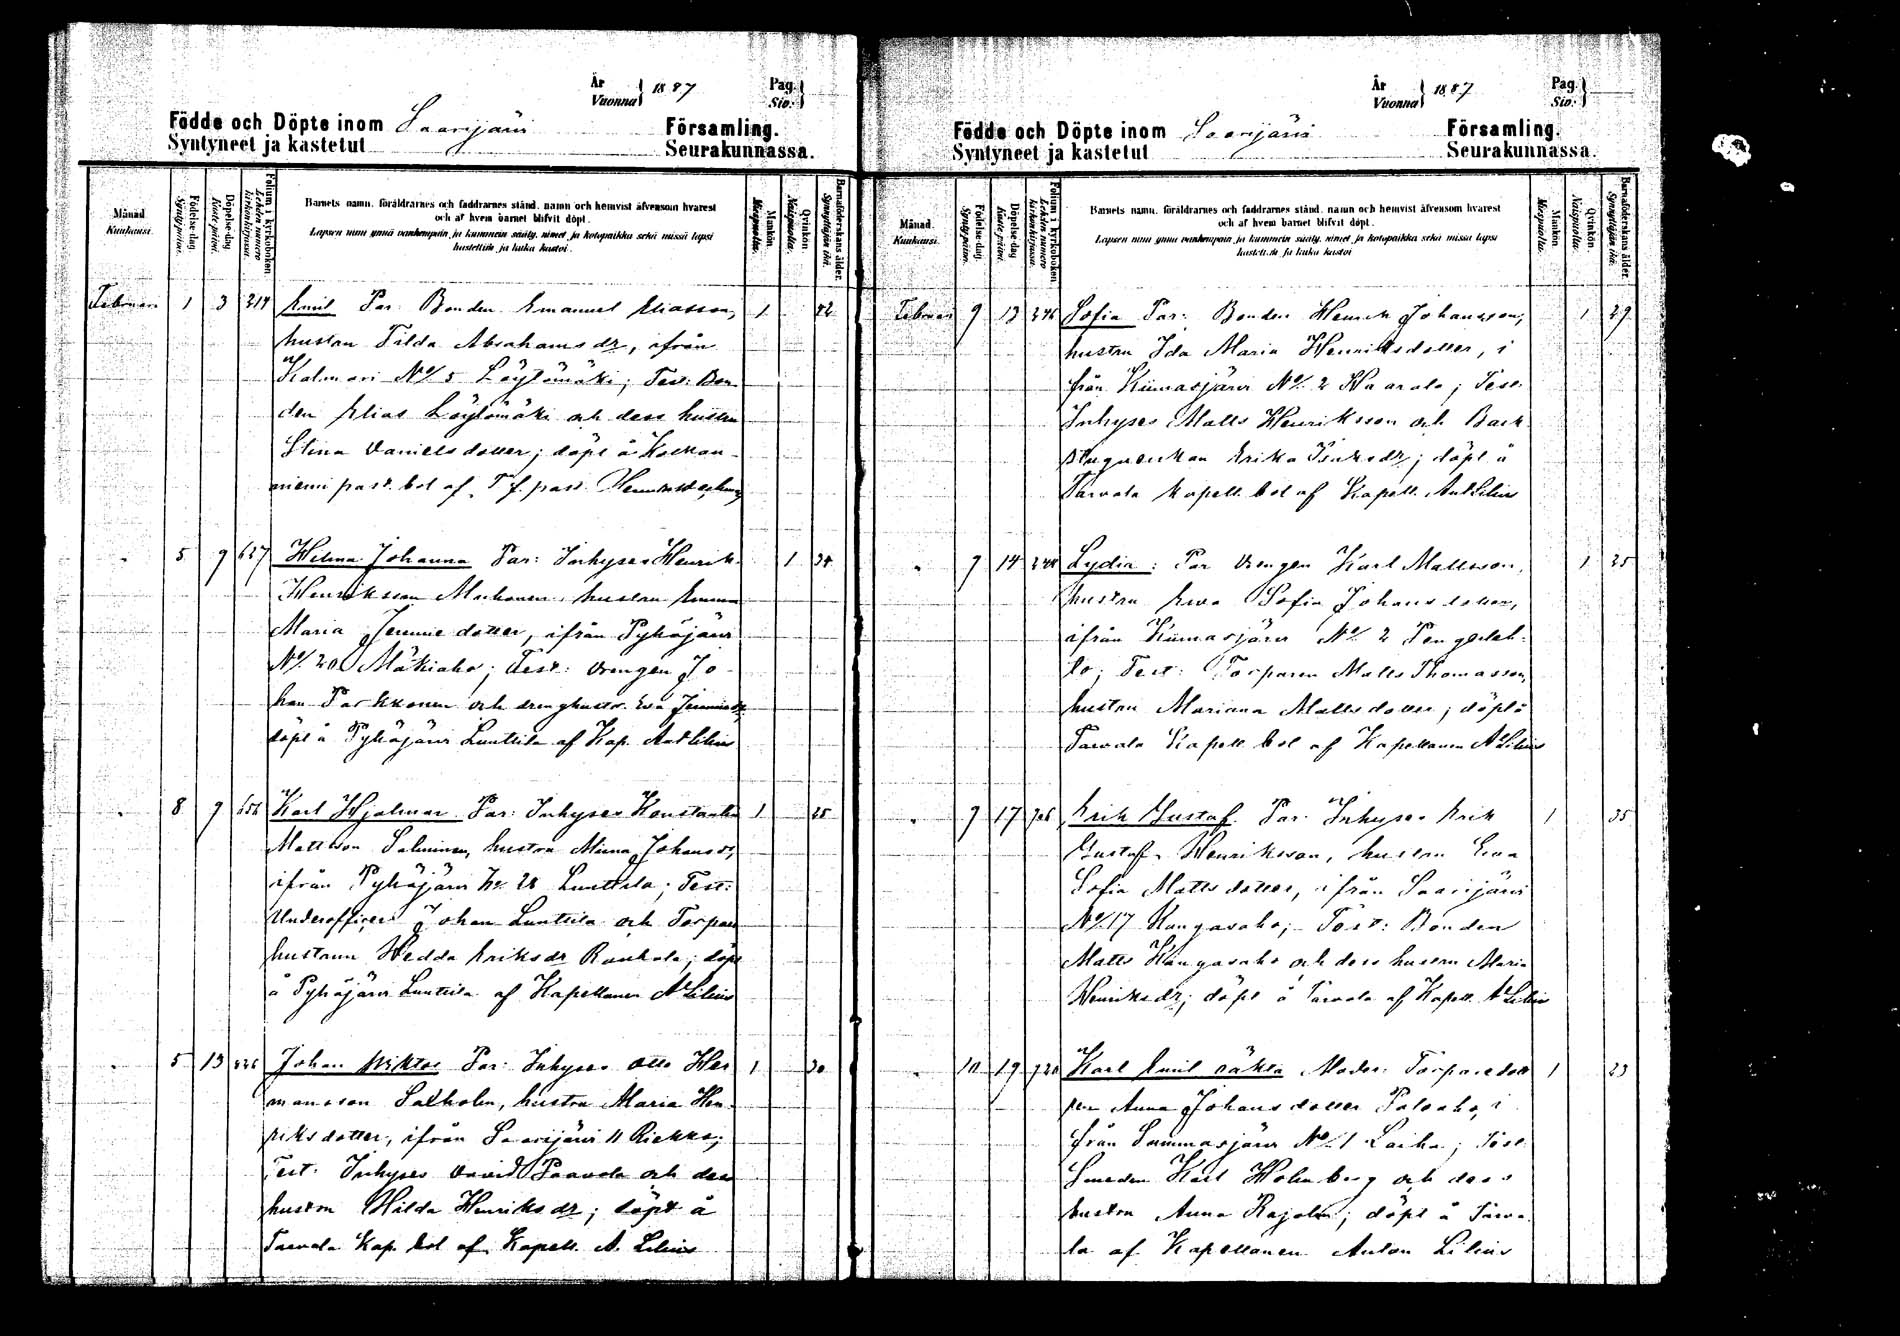 År
Vuonna } 1887
Pag.
Siv. }
Födde och Döpte inom Saarijärvi Församling.
Syntyneet ja kastetut Seurakunnassa.
Månad. Kuukausi.
Födelse-dag. Syntypäivä.
Döpelse-dag. Kastepäivä.
Folium i kyrkoboken Lehden numero kirkonkirjassa.
Barnets namn, föräldrarnes och faddrarnes stånd, namn och hemvist äfvensom hvarest
och af hvem barnet blifvit döpt.
Lapsen nimi ynnä vanhempain ja kummein sääty, nimet ja kotopaikka sekä missä lapsi
kastettiin ja kuka kastoi.
Mankön. Miespuolta.
Qvinkön. Naispuolta.
Barnaföderskans ålder. Synnyttäjän ikä.
Februari 1 3 214 Emil Par. Bonden Emanuel Eliasson, 1 42
hustrun Tilda Abrahamsdr, ifrån
Kalmari No 5 Löytömäki; Test: Bon-
den Elias Löytömäki och dess hustru
Stina Danielsdotter; döpt å Kolkan-
niemi past. bol af T. f. past.
" 5 9 627 Helma Johanna Par: Inhyses Henrik 1 34
Henriksson hustrun Emma
Maria Jeremiedotter, ifrån Pyhäjärvi
No 20 Mäkiaho; Test: Drengen Jo-
han Parkkonen och drenghustr. Eva
döpt å Pyhäjärvi Lunttila af Kap. Ant Lilius
" 8 9 656 Karl Hjalmar Par: Inhyses Konstantin 1 25
Mattsson Salminen, hustru Miina Johansdr,
ifrån Pyhäjärvi No 28 Lunttila; Test:
Underofficer Johan Lunttila och Torpare
hustrun Hedda Eriksdr Rauhala; döpt
å Pyhäjärvi Lunttila af Kapellanen A Lilius
" 5 13 Johan Viktor Par: Inhyses Otto Her- 1 30
mansson Salholm, hustru Maria Hen-
riksdotter, ifrån Saarijärvi 11 Riekko;
Test. Inhyses David Paavola och dess
hustru Hilda Henriksdr; döpt å
Tarvala Kap. bol af Kapell. A. Lilius
År
Vuonna } 1887
Pag.
Siv. }
Födde och Döpte inom Saarijärvi Församling.
Syntyneet ja kastetut Seurakunnassa.
Månad. Kuukausi.
Födelse-dag. Syntypäivä.
Döpelse-dag. Kastepäivä.
Folium i kyrkoboken Lehden numero kirkonkirjassa.
Barnets namn, föräldrarnes och faddrarnes stånd, namn och hemvist äfvensom hvarest
och af hvem barnet blifvit döpt.
Lapsen nimi ynnä vanhempain ja kummein sääty, nimet ja kotopaikka sekä missä lapsi
kastettiin ja kuka kastoi
Mankön. Miespuolta.
Qvinkön. Naispuolta.
Barnaföderskans ålder. Synnyttäjän ikä.
Februari 9 13 246 Sofia Par: Bonden Henrik Johansson, 1 29
hustru Ida Maria Henriksdotter, i
från Kiimasjärvi No 2 Haarala; Test:
Inhyses Matts Henriksson och Back
stuguenkan Erika Isaksdr; döpt å
Tarvala Kapell. bol af Kapell. Ant Lilius
" 9 14 248 Lydia: Par Drengen Karl Mattsson, 1 25
hustru Eva Sofia Johansdotter,
ifrån Kiimasjärvi No 2
lo; Test: Torparen Matts Thomasson,
hustru Mariana Mattsdotter; döpt å
Tarvala Kapell bol af Kapellanen A Lilius
" 9 17 Erik Gustaf Par. Inhyses Erik 1 35
Gustaf Henriksson, hustru Eva
Sofia Mattsdotter, ifrån Saarijärvi
No 17 Kangasaho; Test: Bonden
Matts Kangasaho och dess hustru Maria
Henriksdr; döpt å Tarvala af Kapell. A Lilius
" 10 19 720 Karl Emil oäkta Moder: Torparedott 1 23
ren Anna Johansdotter Paloaho, i
från Summasjärvi No 1 Laiha; Test
Smeden Karl Holmberg och dess
hustru Anna Rajalin; döpt å Tarva
la af Kapellanen Anton Lilius